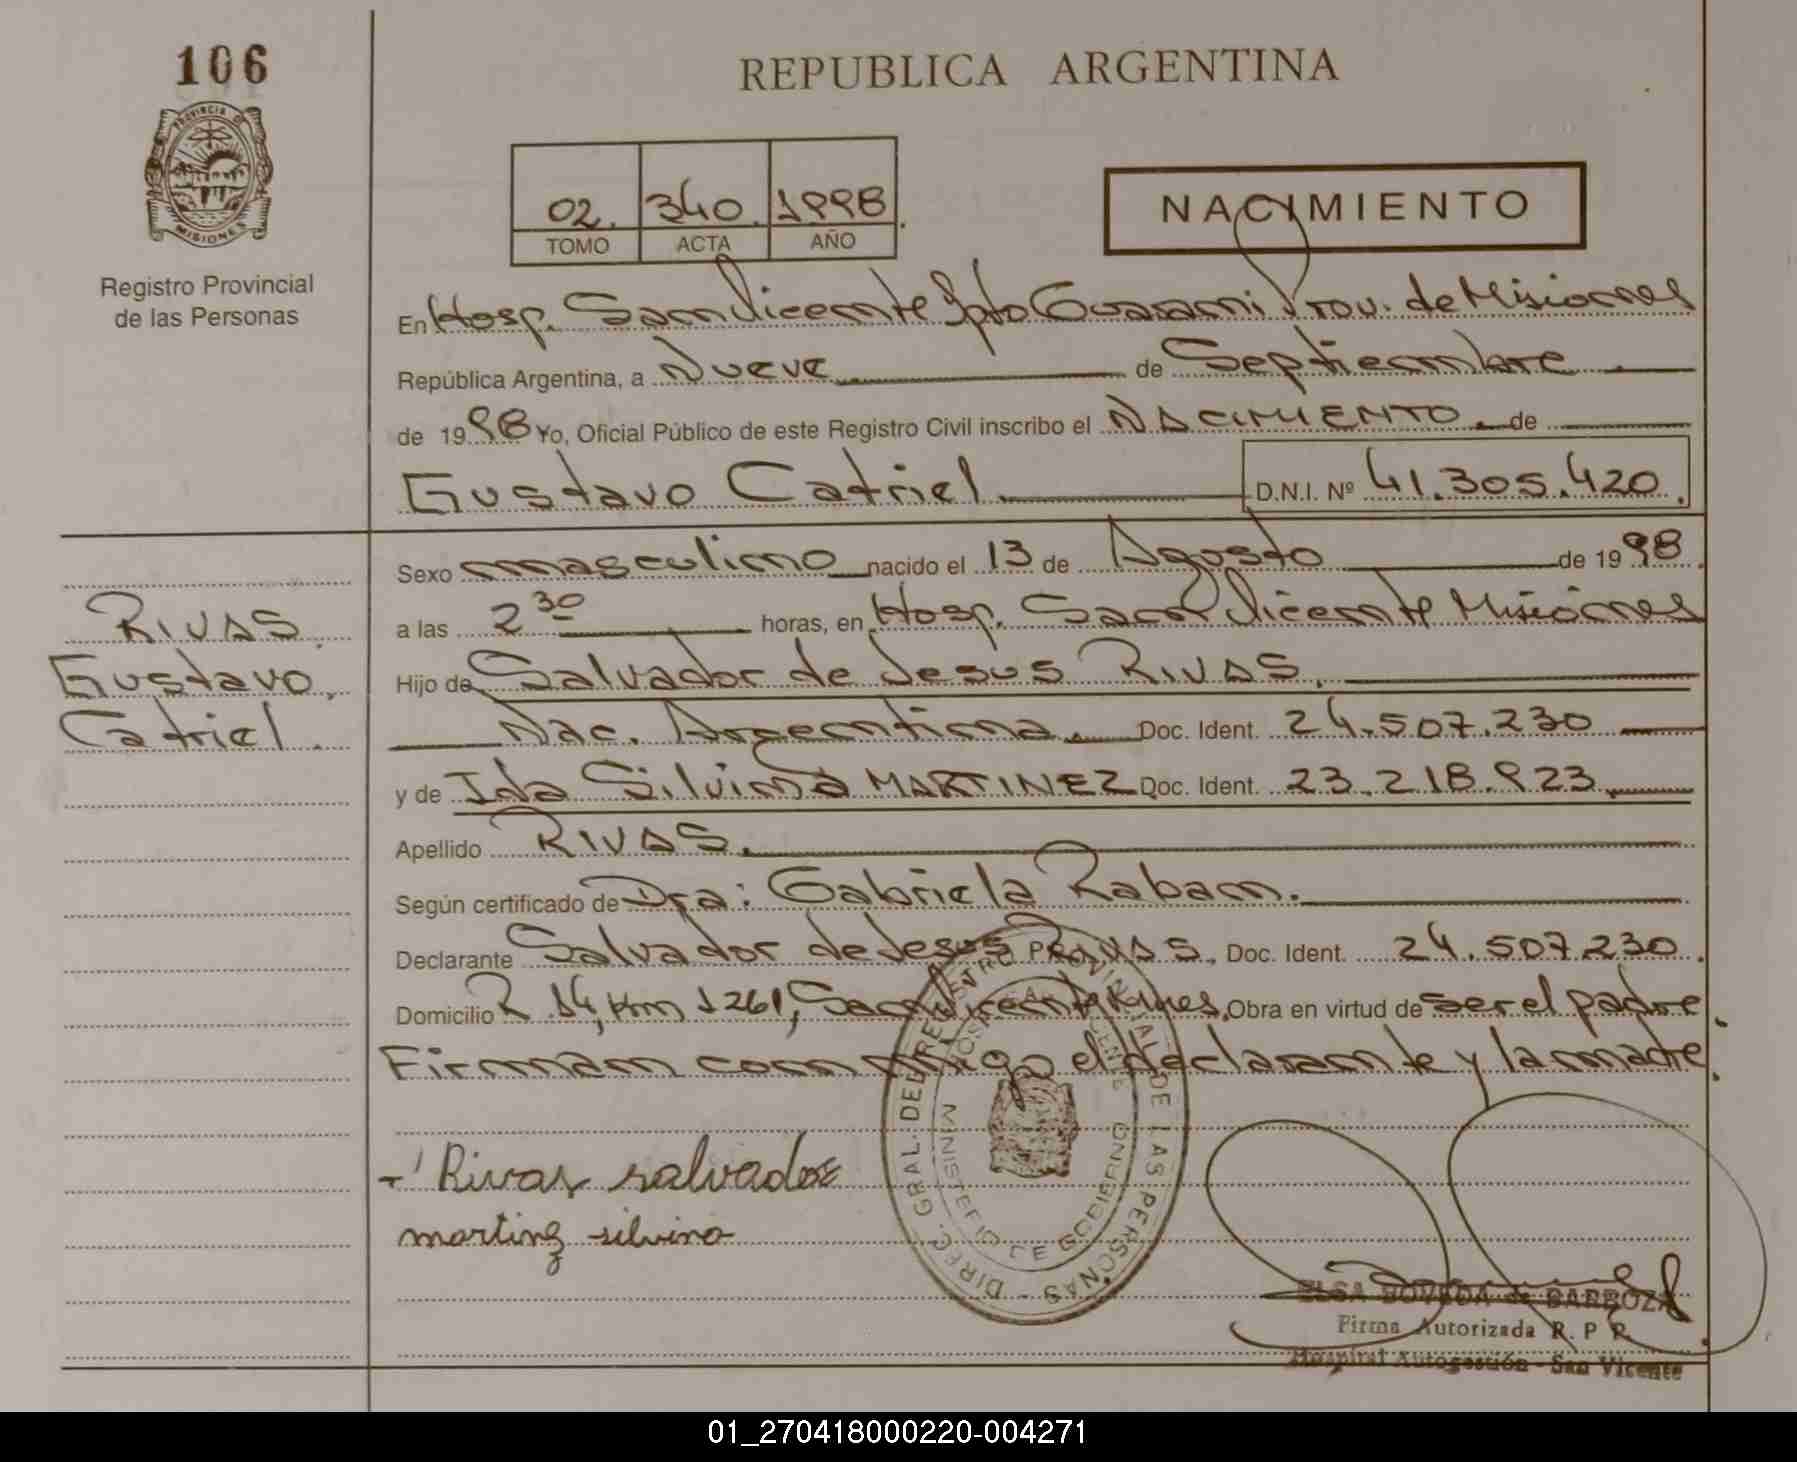 106
REPUBLICA ARGENTINA
PROVINCIA DE
MISIONES
Registro Provincial
de las Personas
02. 340. 1998.
TOMO ACTA AÑO
NACIMIENTO
En Hosp. San Vicente Dpto Guarani Prov. de Misiones
República Argentina, a Nueve de Septiembre
de 1998 Yo, Oficial Público de este Registro Civil inscribo el NACIMIENTO de
Gustavo Catriel D.N.I. Nº 41.305.420.
Sexo masculino nacido el 13 de Agosto de 1998.
a las 2 30 horas, en Hosp. San Vicente Misiones
Hijo de Salvador de Jesus RIVAS.
Nac. Argentina. Doc. Ident. 24.507.230
y de Ida Silvina MARTINEZ Doc. Ident. 23.218.923.
Apellido RIVAS.
Según certificado de Dra: Gabriela Raban.
Declarante Salvador de Jesus RIVAS. Doc. Ident. 24.507.230.
Domicilio R. 14, Km 1261, San Vicente, Obra en virtud de ser el padre.
Firman conmigo el declarante y la madre.
RIVAS.
Gustavo,
Catriel.
Rivas salvador
martinz silvina
DIREC. GRAL. DEL REGISTRO PROVINCIAL DE LAS PERSONAS
MINISTERIO DE GOBIERNO
ELSA BOVEDA de BARBOZA
Firma Autorizada R. P P.
Hospital Autogestión - San Vicente
01_270418000220-004271